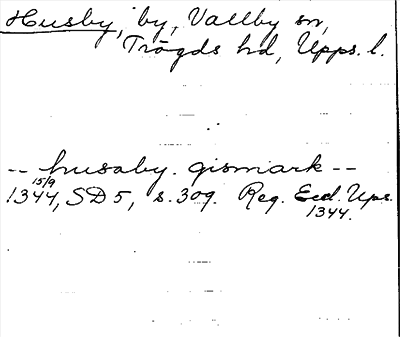 Husby, by, Vallby sn,
Trögds hd, Upps. l.
-- husaby. gismark --
15/9
1344, SD 5, s. 309. Reg. Eccl. Ups.
1344.